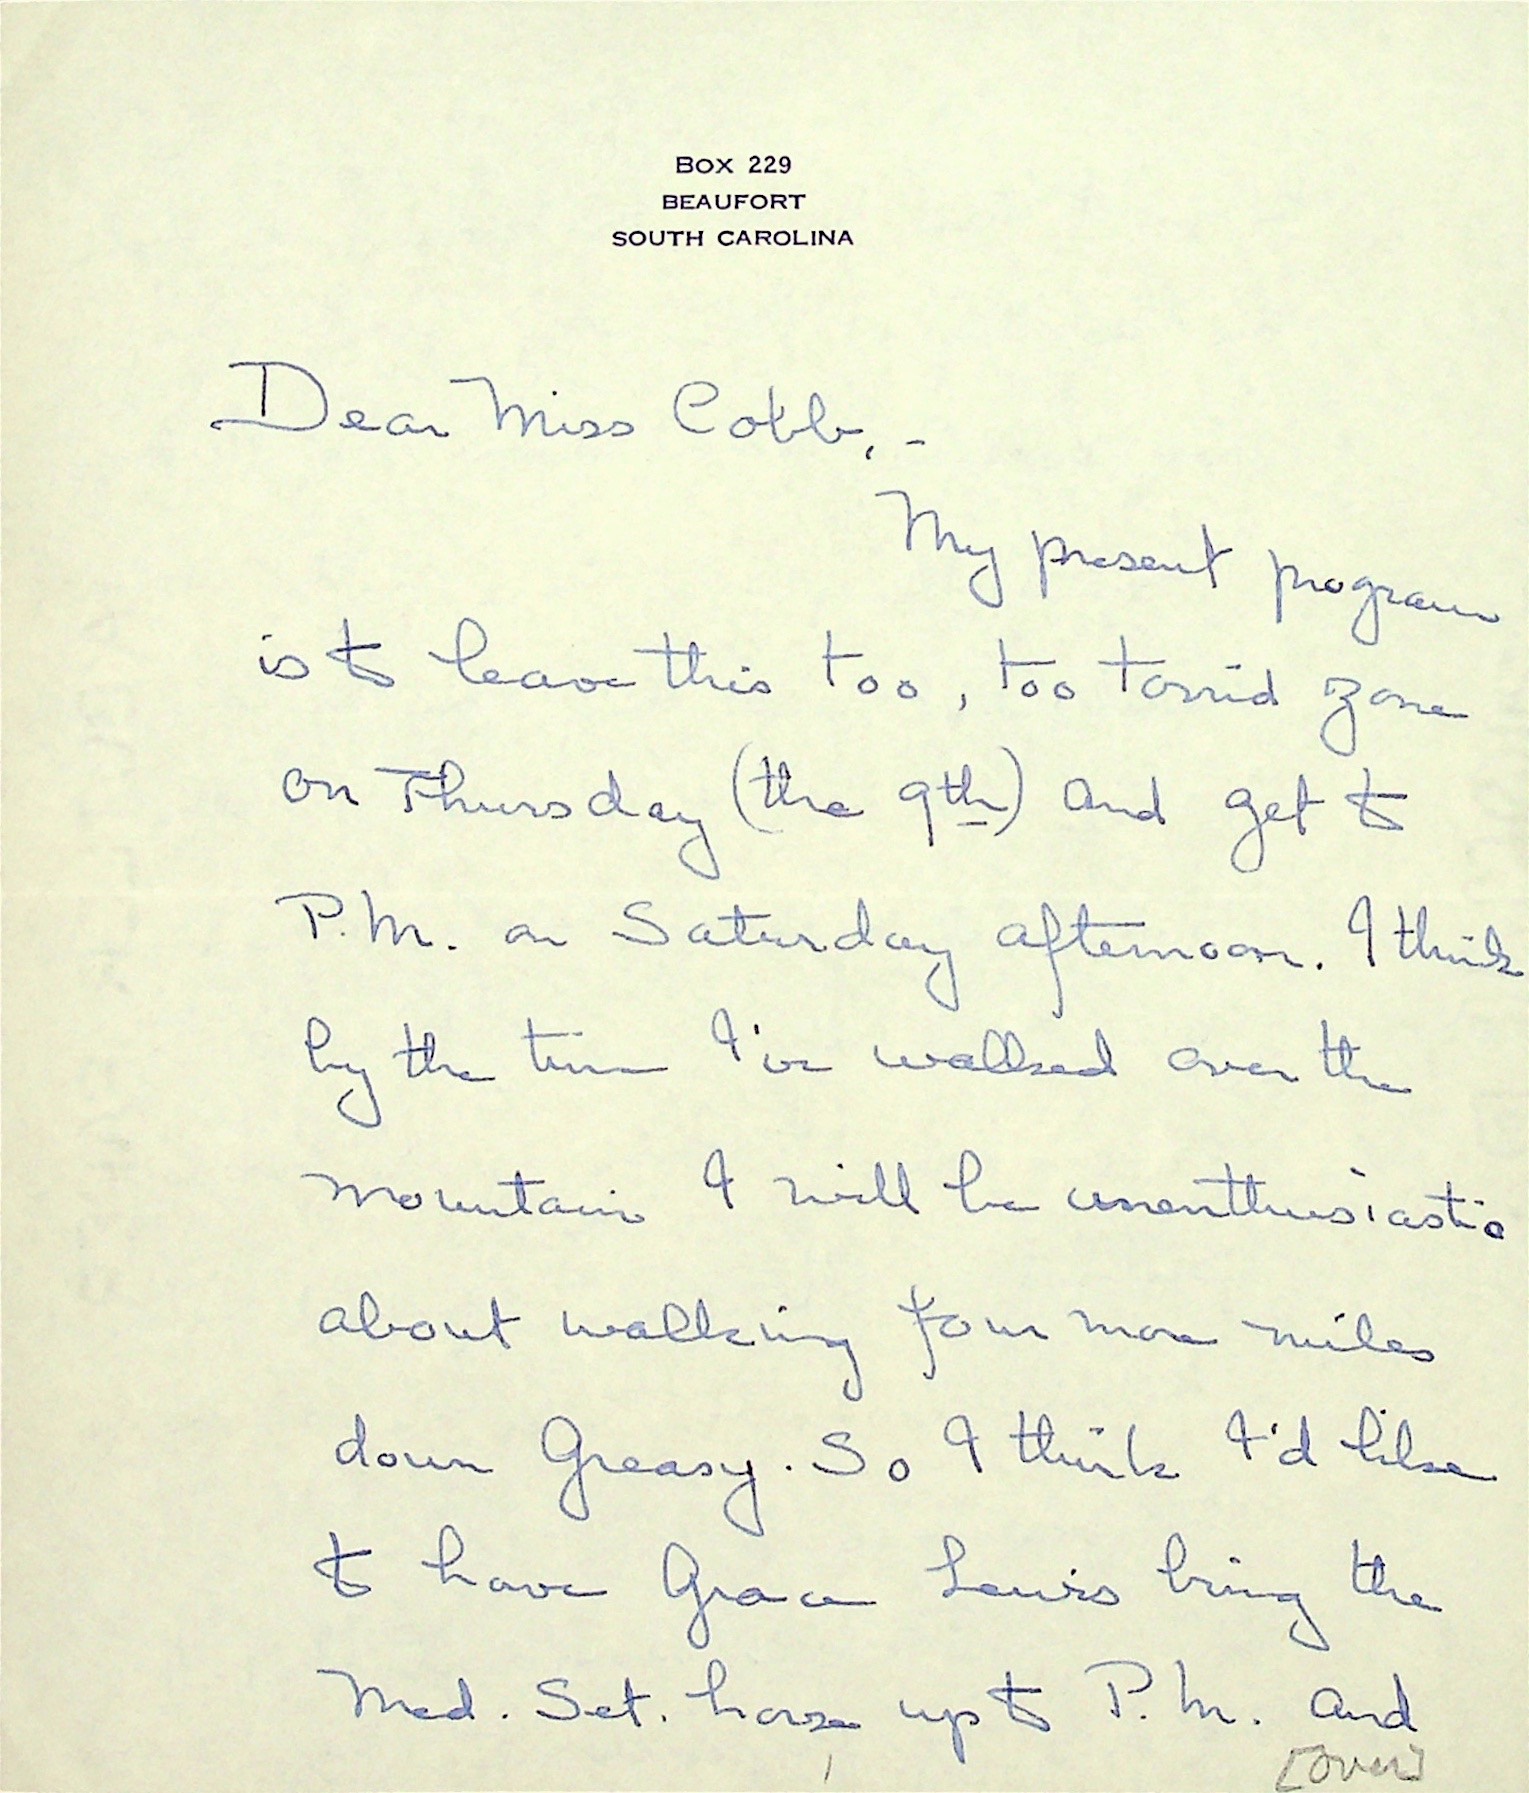 Box 229
BEAUFORT
SOUTH CAROLINA
Dear Miss Cobb, -
My present program
is to leave this too, too torrid zone
on Thursday (the 9th) and get to
P.M. on Saturday afternoon. I think
by the time I've walked over the
mountain I will be unenthusiastic
about walking four more miles
down Greasy. So I think I'd like
to have Grace Lewis bring the
Med. Set. horse up to P.M. and
[over]